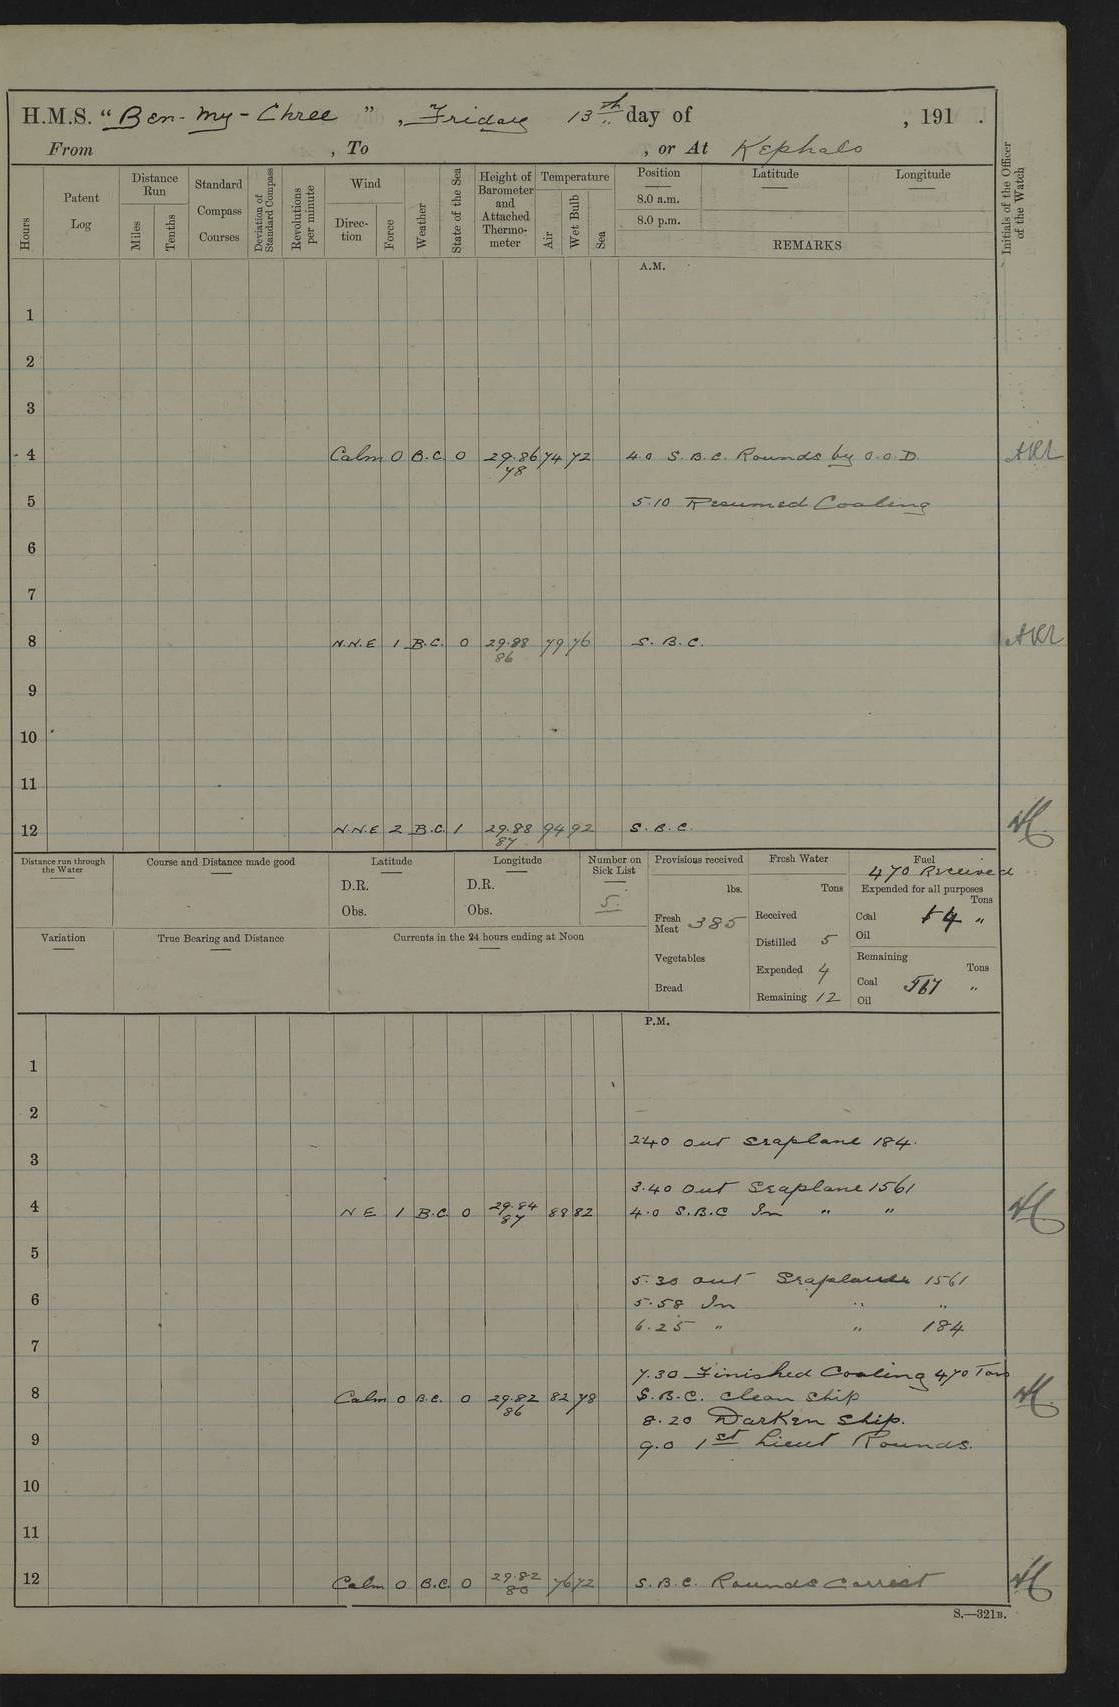 H.M.S. “Ben-my-Chree”, Friday 13th day of , 191 .
From , To , or At Kephalo
Hours
Patent Log
Distance Run
Miles
Tenths
Standard Compass Courses
Deviation of Standard Compass
Revolutions per minute
Wind
Direc-tion
Force
Weather
State of the Sea
Height of Barometer and Attached Thermo-meter
Temperature
Air
Wet Bulb
Sea
Position
8.0 a.m.
8.0 p.m.
Latitude
Longitude
REMARKS
Initials of the Officer of the Watch
A.M.
1
2
3
4 Calm 0 B.C. 0 29.86 74 72 4.0 S.B.C. Rounds by O.O.D.
78
5 5.10 Resumed Coaling
6
7
8 N.N.E 1 B.C. 0 29.88 79 76 S.B.C.
86
9
10
11
12 N.N.E 2 B.C. 1 29.88 94 92 S.B.C.
87
Distance run through the Water
Course and Distance made good
Latitude
D.R.
Obs.
Longitude
D.R.
Obs.
Number on Sick List
5.
Provisions received
lbs.
Fresh Meat 385
Vegetables
Bread
Fresh Water
Tons
Received
Distilled 5
Expended 4
Remaining 12
Fuel
470 Received
Expended for all purposes
Tons
Coal 14 „
Oil
Remaining
Tons
Coal 567 „
Oil
Variation
True Bearing and Distance
Currents in the 24 hours ending at Noon
P.M.
1
2
2.40 out Seaplane 184.
3
3.40 Out Seaplane 1561
4 N E 1 B.C. 0 29.84 88 82 4.0 S.B.C In „ „
87
5
5.30 out Seaplane 1561
6 5.58 In „ „
6.25 „ „ 184
7
7.30 Finished Coaling 470 Tons
8 Calm 0 B.C. 0 29.82 82 78 S.B.C. Clean Ship
86
8.20 Darken Ship.
9 9.0 1st Lieut Rounds.
10
11
12 Calm 0 B.C. 0 29.82 76 72 S.B.C. Rounds Correct
80
S.—321B.